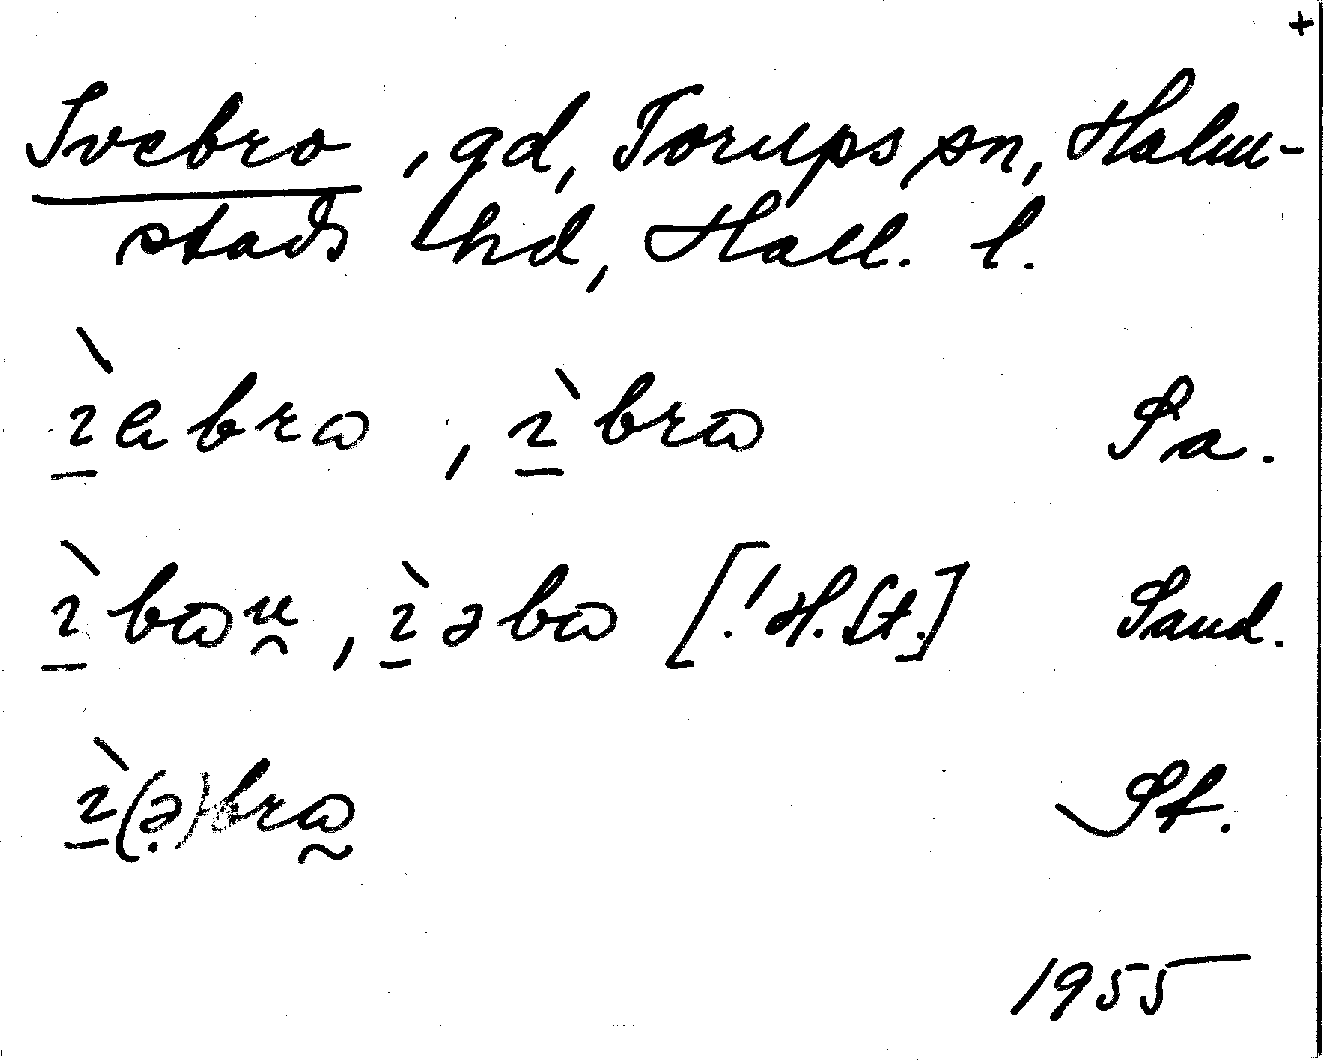 +
Ivebro, gd, Torups sn, Halm-
stads hd, Hall. l.
ı̱̀ebrɷ, ı̱̀brɷ Sa.
ı̱̀bɷu̯, ı̱̀əbɷ [! H. St.] Sand.
ı̱̀(ə̣)brɷ̰ St.
1955